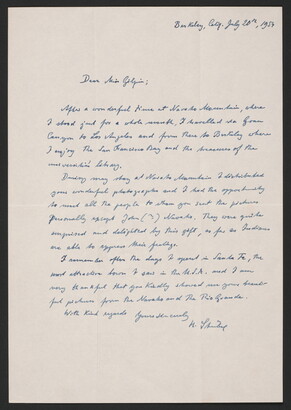 Berkeley, Calif. July 20th, 1954
Dear Miss Gilpin;
After a wonderful time at Navaho Mountain, where
I stood just for a whole month, I travelled via Grand
Canyon to Los Angeles and from there to Berkeley where
I enjoy the San Francisco Bay and the treasures of the
university's library.
During my stay at Navaho Mountain I distributed
your wonderful photographs and I had the opportunity
to meet all the people to whom you sent the pictures
personally except John (?) Navaho. They were quite
surprised and delighted by this gift, as far as Indians
are able to express their feelings.
I remember often the days I spent in Santa Fe, the
most attractive town I saw in the U.S.A. and I am
very thankful that you kindly showed me your beauti-
ful pictures from the Navaho and the Rio Grande.
With kind regards Yours sincerely